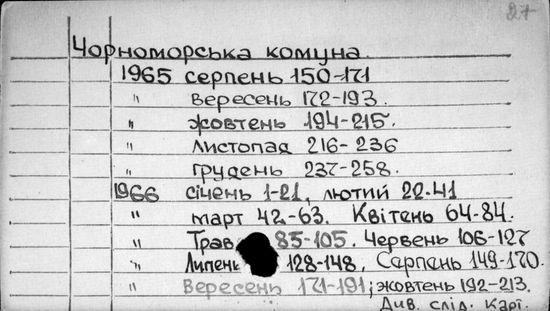 27
Чорноморська комуна.
1965 серпень 150-171
" вересень 172-193.
" жовтень 194-215.
" листопад 216-236
" грудень 237-258.
1966 січень 1-21, лютий 22-41
" март 42-63. Квітень 64-84.
" Трав 85-105. Червень 106-127
" Липень 128-148, Серпень 149-170.
" Вересень 171-191; жовтень 192-213.
Див. слід. карт.